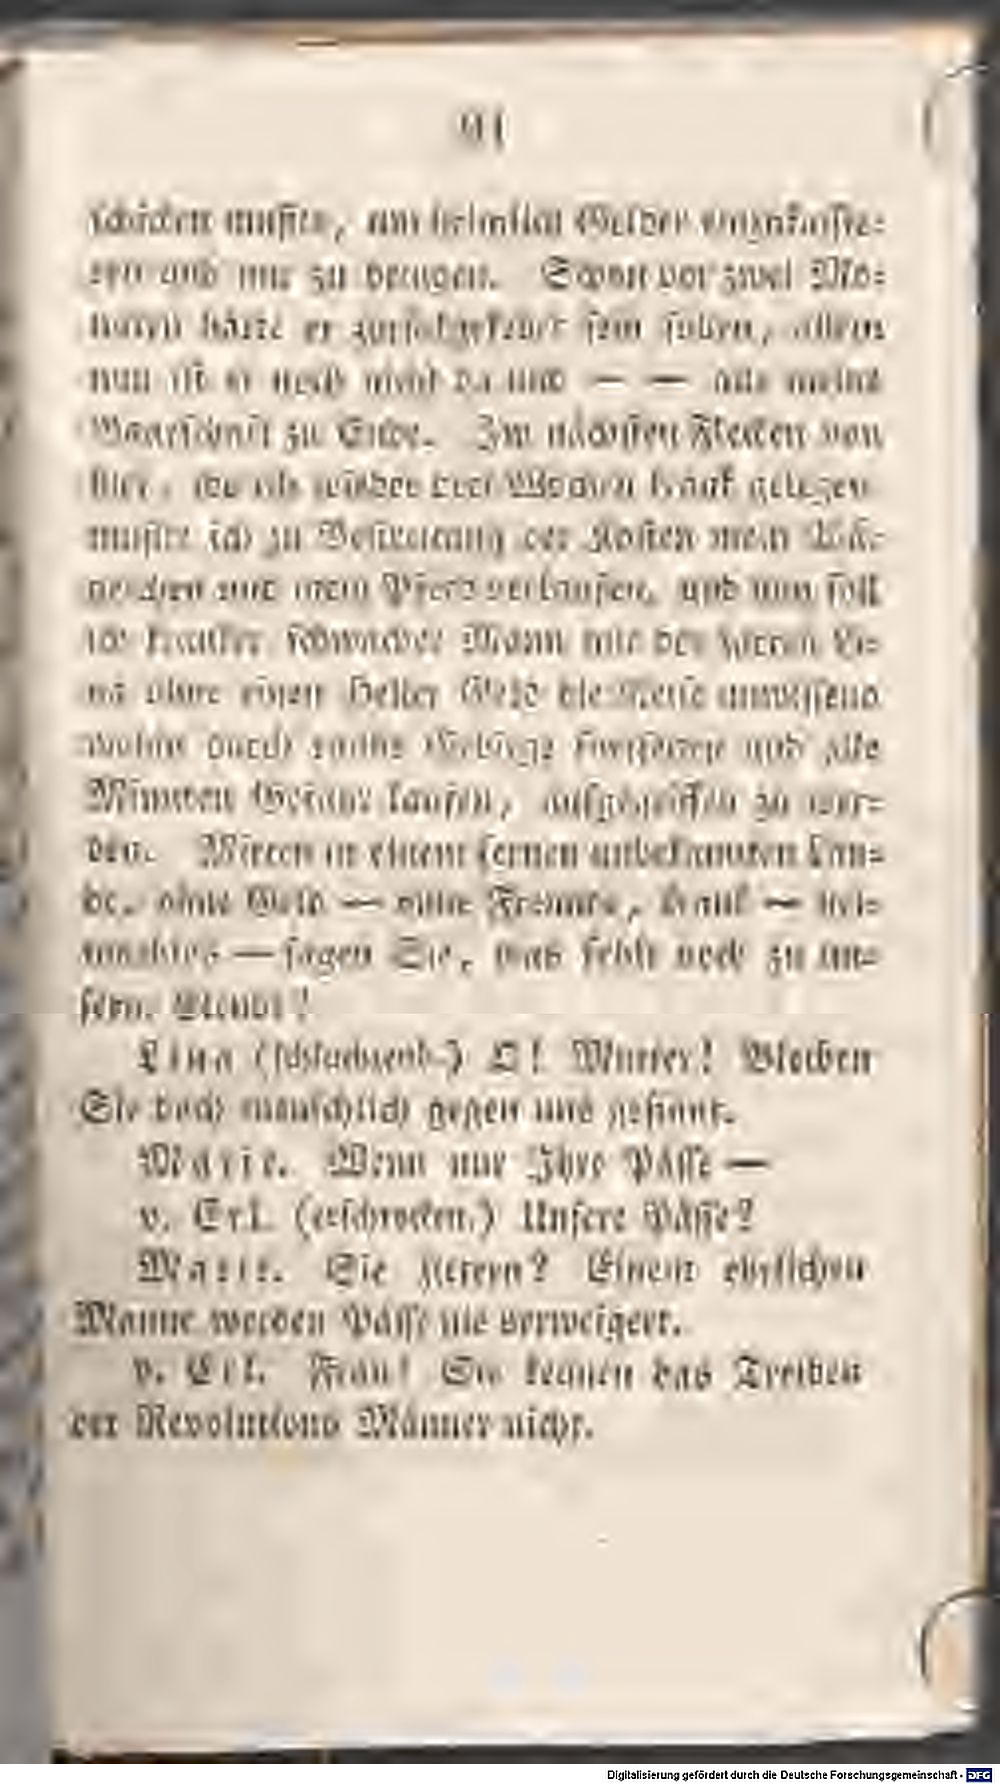 91
schicken mußte, um heimlich Gelder einzukassi=
ren und mir zu bringen. Schon vor zwei Mo=
naten hätte er zurückgekehrt sein sollen, allein
nun ist er noch nicht da und — — alle meine
Baarschaft zu Ende. Im nächsten Flecken von
hier, wo ich wieder drei Wochen krank gelegen
mußte ich zu Bestreitung der Kosten mein
und mein Pferd verkaufen, und nun soll
ich kranker schwacher Mann mit der zarten Li=
na ohne einen Heller Geld die Reise unwissend
wohin durch rauhe Gebirge fortsetzen und alle
Minuten Gefahr laufen, aufgegriffen zu wer=
den. Mitten in einem fernen unbekannten Lan=
de, ohne Geld — ohne Freunde, krank —
— sagen Sie, was fehlt noch zu un=
serm Elende?
Lina (schluchzend.) O! Mutter! Bleiben
Sie doch menschlich gegen uns gesinnt.
Marie. Wenn nur Ihre Pässe —
v. Erl. (erschrocken.) Unsere Pässe?
Marie. Sie zittern? Einem ehrlichen
Manne werden Pässe nie verweigert.
v. Erl. Frau! Sie kennen das Treiben
der Revolutions Männer nicht.
Digitalisierung gefördert durch die Deutsche Forschungsgemeinschaft - DFG